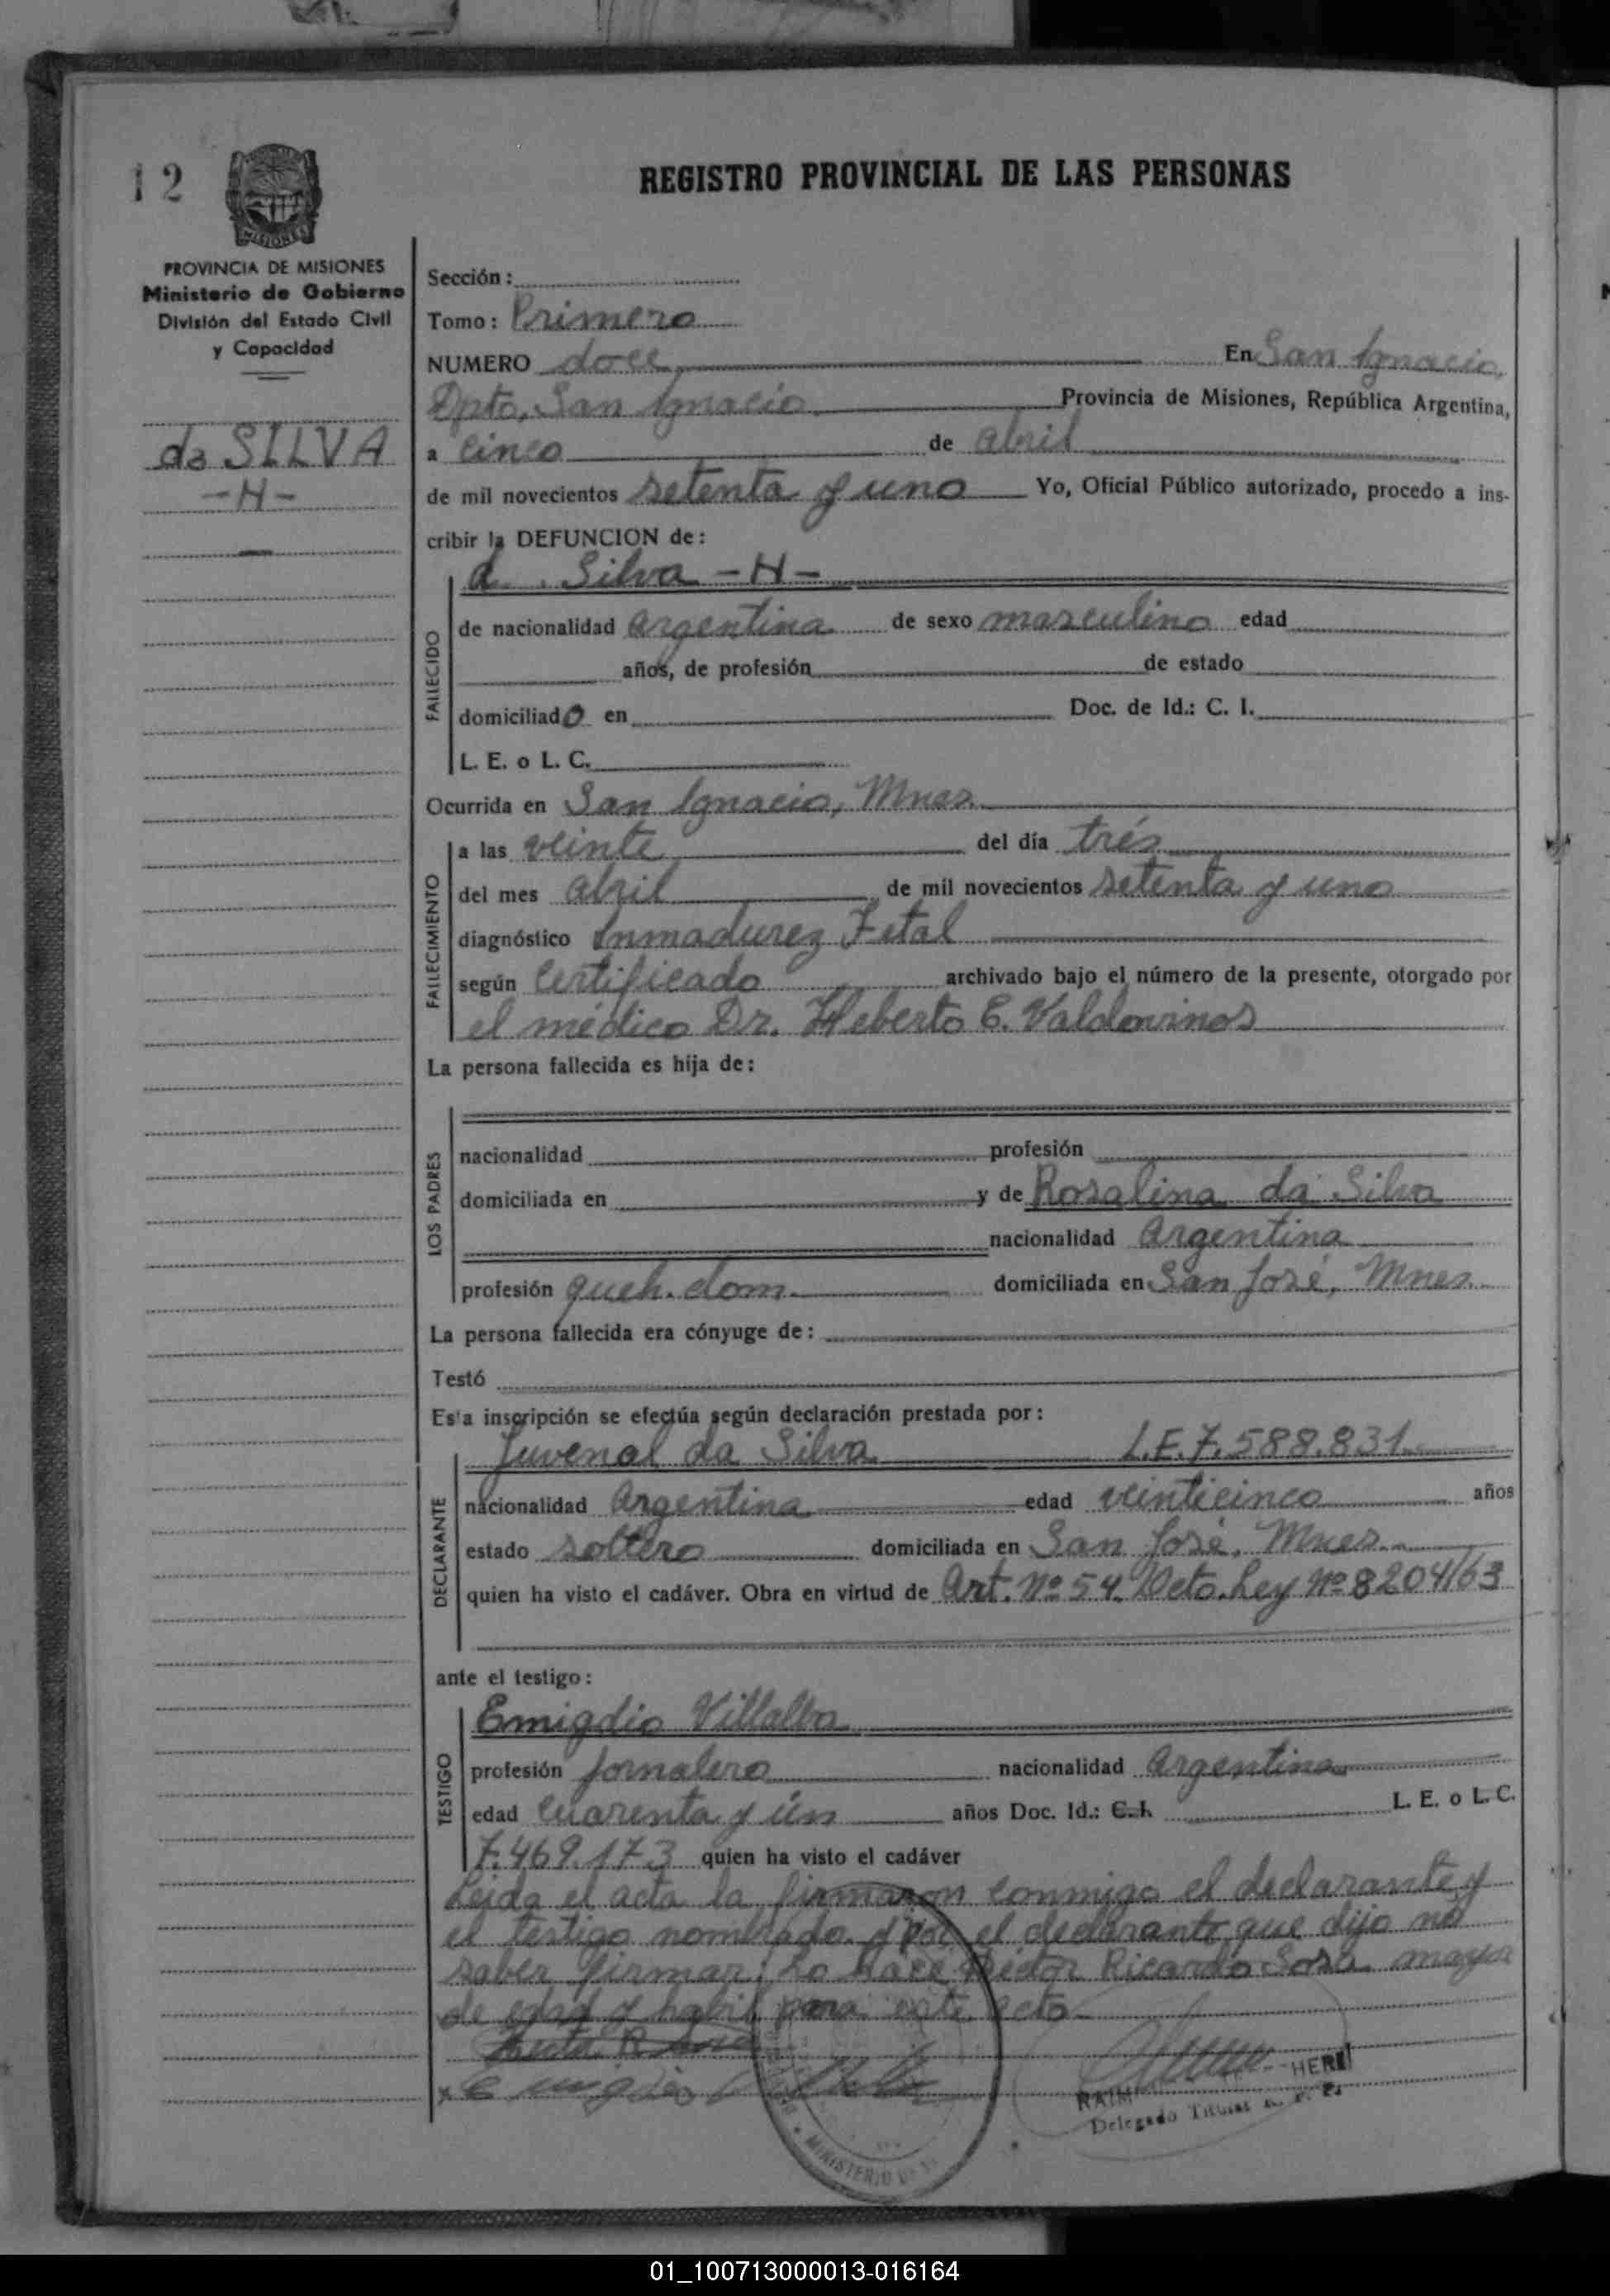 12
REGISTRO PROVINCIAL DE LAS PERSONAS
MISIONES
PROVINCIA DE MISIONES
Ministerio de Gobierno
División del Estado Civil
y Capacidad
da SILVA
-N-
Sección:
Tomo: Primero
NUMERO doce En San Ignacio,
Dpto. San Ignacio Provincia de Misiones, República Argentina,
a cinco de abril
de mil novecientos setenta y uno Yo, Oficial Público autorizado, procedo a ins-
cribir la DEFUNCION de:
FALLECIDO
d Silva -N-
de nacionalidad argentina de sexo masculino edad
años, de profesión de estado
domiciliado en Doc. de Id.: C. I.
L. E. o L. C.
Ocurrida en San Ignacio, Mnes.
FALLECIMIENTO
a las veinte del día trés
del mes abril de mil novecientos setenta y uno
diagnóstico Inmadurez Fetal
según Certificado archivado bajo el número de la presente, otorgado por
el médico Dr. Heberto E. Valdovinos
La persona fallecida es hija de:
LOS PADRES
nacionalidad profesión
domiciliada en y de Rosalina da Silva
nacionalidad Argentina
profesión queh. dom. domiciliada en San José, Mnes.
La persona fallecida era cónyuge de:
Testó
Esta inscripción se efectúa según declaración prestada por:
DECLARANTE
Juvenal da Silva L.E.7.588.831
nacionalidad Argentina edad veinticinco años
estado soltero domiciliada en San José, Mnes.
quien ha visto el cadáver. Obra en virtud de Art. Nº 54 Dcto. Ley Nº 8204/63
ante el testigo:
TESTIGO
Emigdio Villalba
profesión Jornalero nacionalidad Argentina
edad Cuarenta y ún años Doc. Id.: C. I. L. E. o L. C.
7.469.173 quien ha visto el cadáver
Leida el acta la firmaron conmigo el declarante y
el testigo nombrado. y por el declarante que dijo no
saber firmar; Lo hace Ricardo Sosa mayor
de edad y habil para este acto
MINISTERIO DE
RAIM HERE
Delegado Titular R. P. P.
01_100713000013-016164